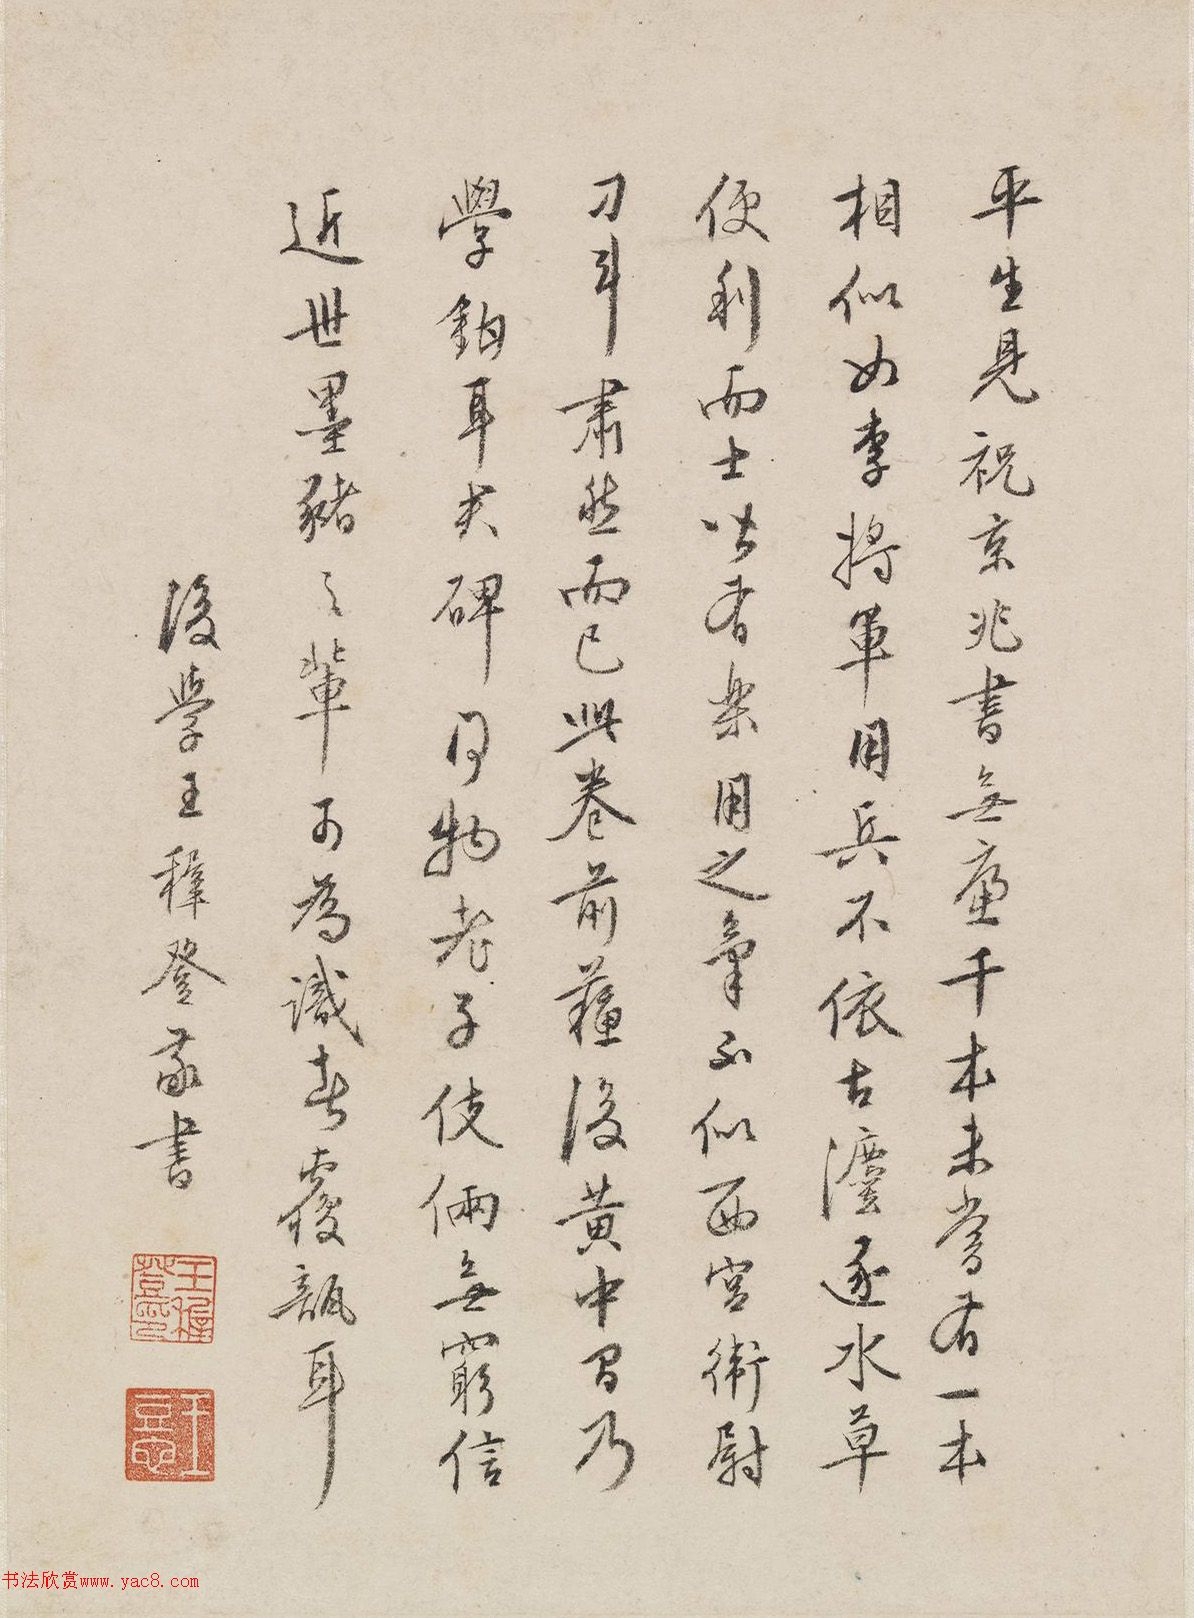 平生見祝京兆書無慮千本未嘗有一本
相似如李將軍用兵不依古法逐水草
便利而士皆有樂用之氣不似西宮衛尉
刀斗肅然而已此卷前蘇後黃中間乃
學鍾耳夫碑同物老子伎倆無窮信
近世墨豬之輩可為識者覆瓿耳
後學王穉登敬書
王穉登印
王百穀
书法欣赏www.yac8.com